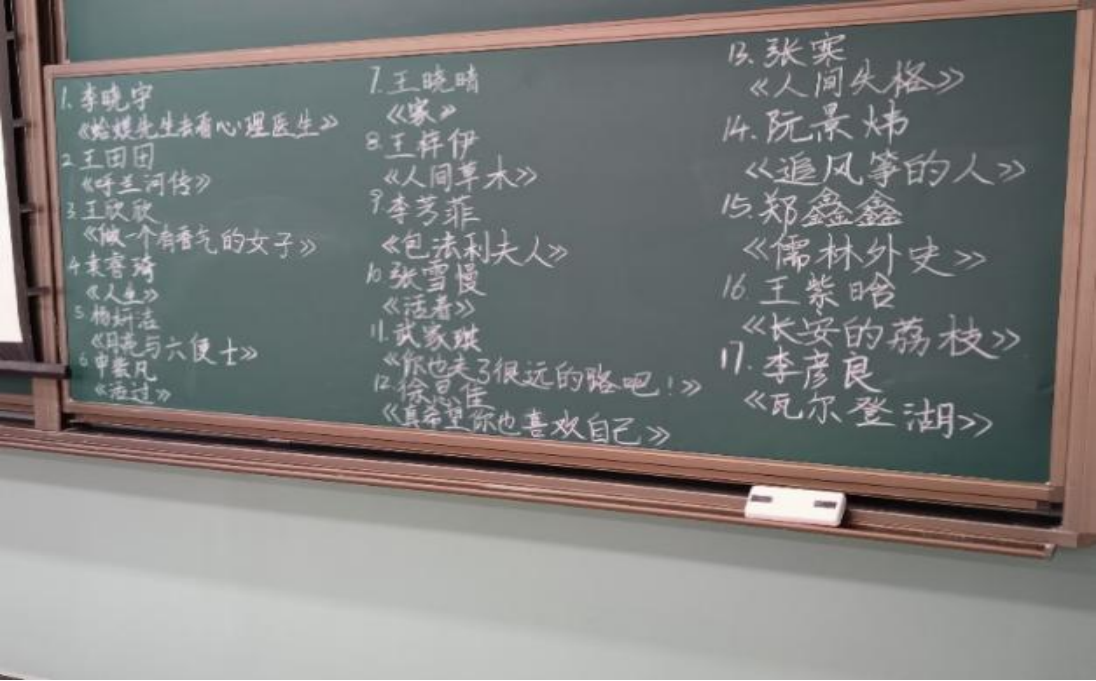 1. 李晓宇
《蛤蟆先生去看心理医生》
2. 王田田
《呼兰河传》
3. 王欣欣
《做一个有香气的女子》
4. 袁睿琦
《人生》
5. 杨妍洁
《月亮与六便士》
6. 申紫凡
《活过》
7. 王晓晴
《家》
8. 王梓伊
《人间草木》
9. 李芳菲
《包法利夫人》
10. 张雪慢
《活着》
11. 武家琪
《你也走了很远的路吧！》
12. 徐思佳
《真希望你也喜欢自己》
13. 张寒
《人间失格》
14. 阮景炜
《追风筝的人》
15. 郑鑫鑫
《儒林外史》
16. 王紫晗
《长安的荔枝》
17. 李彦良
《瓦尔登湖》